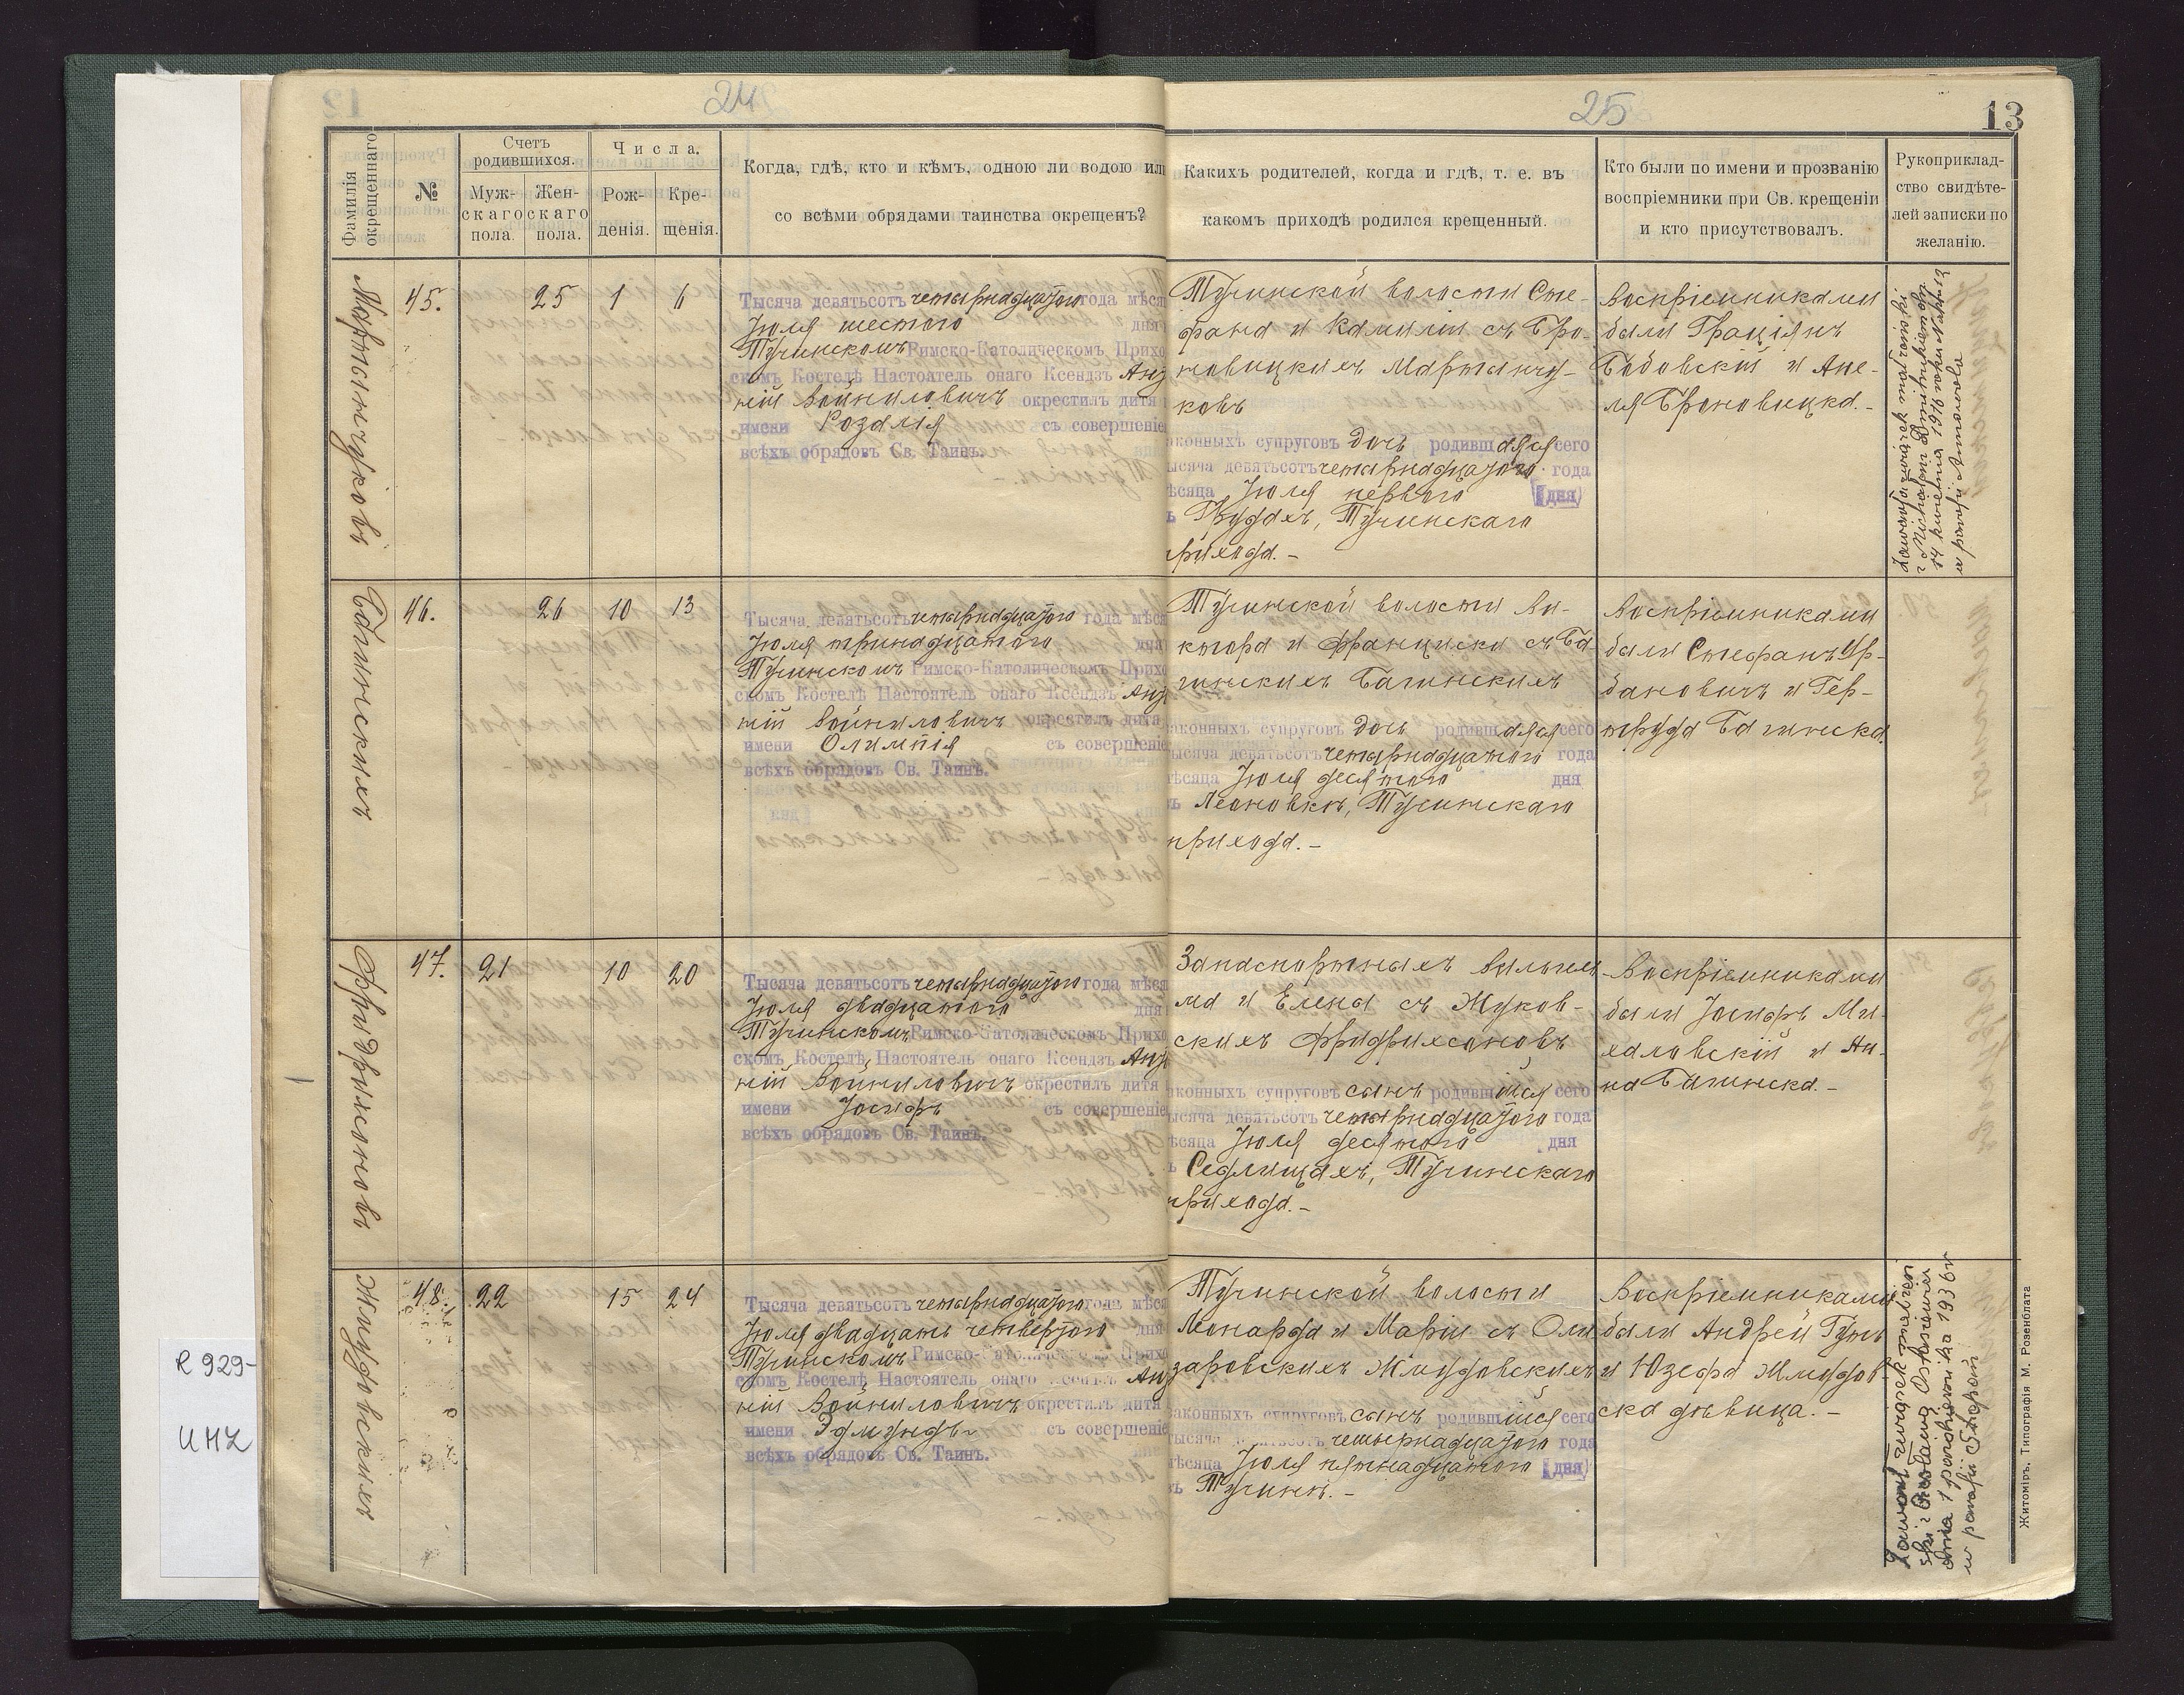 24
25
13
Фамилія окрещеннаго
№
Счетъ родившихся.
Муж-скаго пола.
Жен-скаго пола.
Числа.
Рож-денія.
Кре-щенія.
Когда, гдѣ, кто и кѣмъ, одною ли водою или
со всѣми обрядами таинства окрещенъ?
Какихъ родителей, когда и гдѣ, т. е. въ
какомъ приходѣ родился крещенный.
Кто были по имени и прозванію
воспріемники при Св. крещеніи
и кто присутствовалъ.
Рукоприклад-
ство свидѣте-
лей записки по
желанію.
Мартынчуковъ
45.
25
1
6
Тысяча девятьсотъ четырнадцатого года мѣся
Іюля шестого дня
Тучинскомъ Римско-Католическомъ Прихо
скомъ Костелѣ Настоятель онаго Ксендзъ Анто
ній Войниловичъ окрестилъ дитя
имени Розалія съ совершеніе
всѣхъ обрядовъ Св. Таинъ.
Тучинской волости Сте-
фана и Камиліи съ Бро-
новицкихъ Мартынчу-
ковъ
аконныхъ супруговъ дочь родившаяся сего
ысяча девятьсотъ четырнадцатого года
ѣсяца Іюля перваго (дня)
ъ Грудахъ, Тучинскаго
прихода. -
Воспріемниками
были Граціянъ
Бобовскій и Ане-
ля Броновицка. -
Багинскихъ
46.
26
10
13
Тысяча девятьсотъ четырнадцатого года мѣся
Іюля тринадцатого дня
Тучинскомъ Римско-Католическомъ Прихо
скомъ Костелѣ Настоятель онаго Ксендзъ Анто
ній Войниловичъ окрестилъ дитя
имени Олимпія съ совершеніе
всѣхъ обрядовъ Св. Таинъ.
Тучинской волости Ви-
ктора и Франциски съ Ба-
гинскихъ Багинскихъ
аконныхъ супруговъ дочь родившаяся сего
ысяча девятьсотъ четырнадцатого года
ѣсяца Іюля десятого дня
ъ Леоновкѣ, Тучинскаго
прихода. -
Воспріемниками
были Стефанъ Ур-
бановичъ и Гер-
труда Багинска.
Фридрихсоновъ
47.
21
10
20
Тысяча девятьсотъ четырнадцатого года мѣся
Іюля двадцатого дня
Тучинскомъ Римско-Католическомъ Прихо
скомъ Костелѣ Настоятель онаго Ксендзъ Анто
ній Войниловичъ окрестилъ дитя
имени Іосифъ съ совершеніе
всѣхъ обрядовъ Св. Таинъ.
Запаспортныхъ Вильгель-
ма и Елены съ Жуков-
скихъ Фридрихсоновъ
аконныхъ супруговъ сынъ родившійся сего
ысяча девятьсотъ четырнадцатого года
ѣсяца Іюля десятого дня
ъ Седлищахъ, Тучинскаго
прихода. -
Воспріемниками
были Іосифъ Ми-
халовскій и Ан-
на Багинска. -
Жмудовскихъ
48.
22
15
24
Тысяча девятьсотъ четырнадцатого года мѣся
Іюля двадцать четвертого дня
Тучинскомъ Римско-Католическомъ Прихо
скомъ Костелѣ Настоятель онаго Ксендзъ Анто
ній Войниловичъ окрестилъ дитя
имени Эдмундъ съ совершеніе
всѣхъ обрядовъ Св. Таинъ.
Тучинской волости
Леонарда и Маріи съ Оли
заровскихъ Жмудовскихъ
аконныхъ супруговъ сынъ родившійся сего
ысяча девятьсотъ четырнадцатого года
ѣсяца Іюля пятнадцатого (дня)
ъ Тучинѣ. -
Воспріемниками
были Андрей Гуць
и Юзефа Жмудов-
ска дѣвица. -
Zawarł związek małżeń
ski z
dnia 1 października 1936 r
w parafji
Житоміръ, Типографія М. Розенблата
R 929-
UMZ